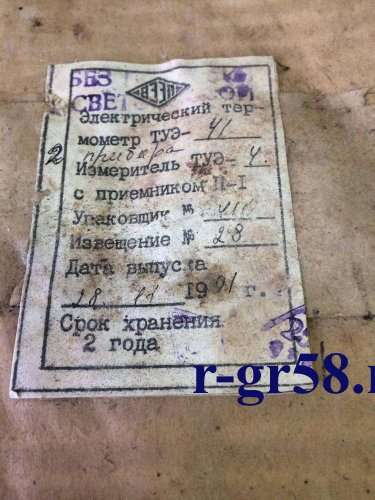 БЕЗ
СВЕТ
Электрический тер-
мометр ТУЭ- 41
2 прибора
Измеритель ТУЭ- 4.
с приемником П-1
Упаковщик №
Извещение № 28
Дата выпуска
28 11 1991 г.
Срок хранения
2 года
r-gr58.